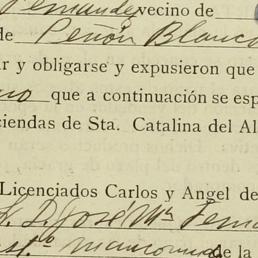 Fernandez vecino de
de Peñón Blanco
ar y obligarse y expusieron que
que a continuación se esp
ciendas de Sta. Catalina del Al
Licenciados Carlos y Angel de
D. José Ma Fern
mancomuna de la